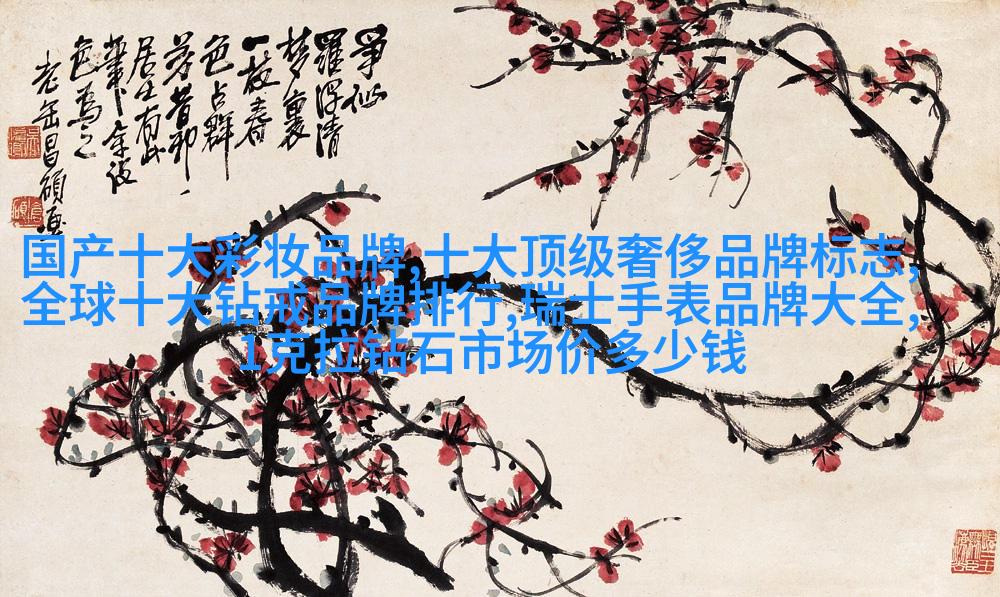 争似
羅浮清
梦裏
一枝春
色占群
芳昔邪
居士有此
筆下余仿
色為之
老缶昌碩
国产十大彩妆品牌,十大顶级奢侈品牌标志,
全球十大钻戒品牌排行,瑞士手表品牌大全,
1克拉钻石市场价多少钱